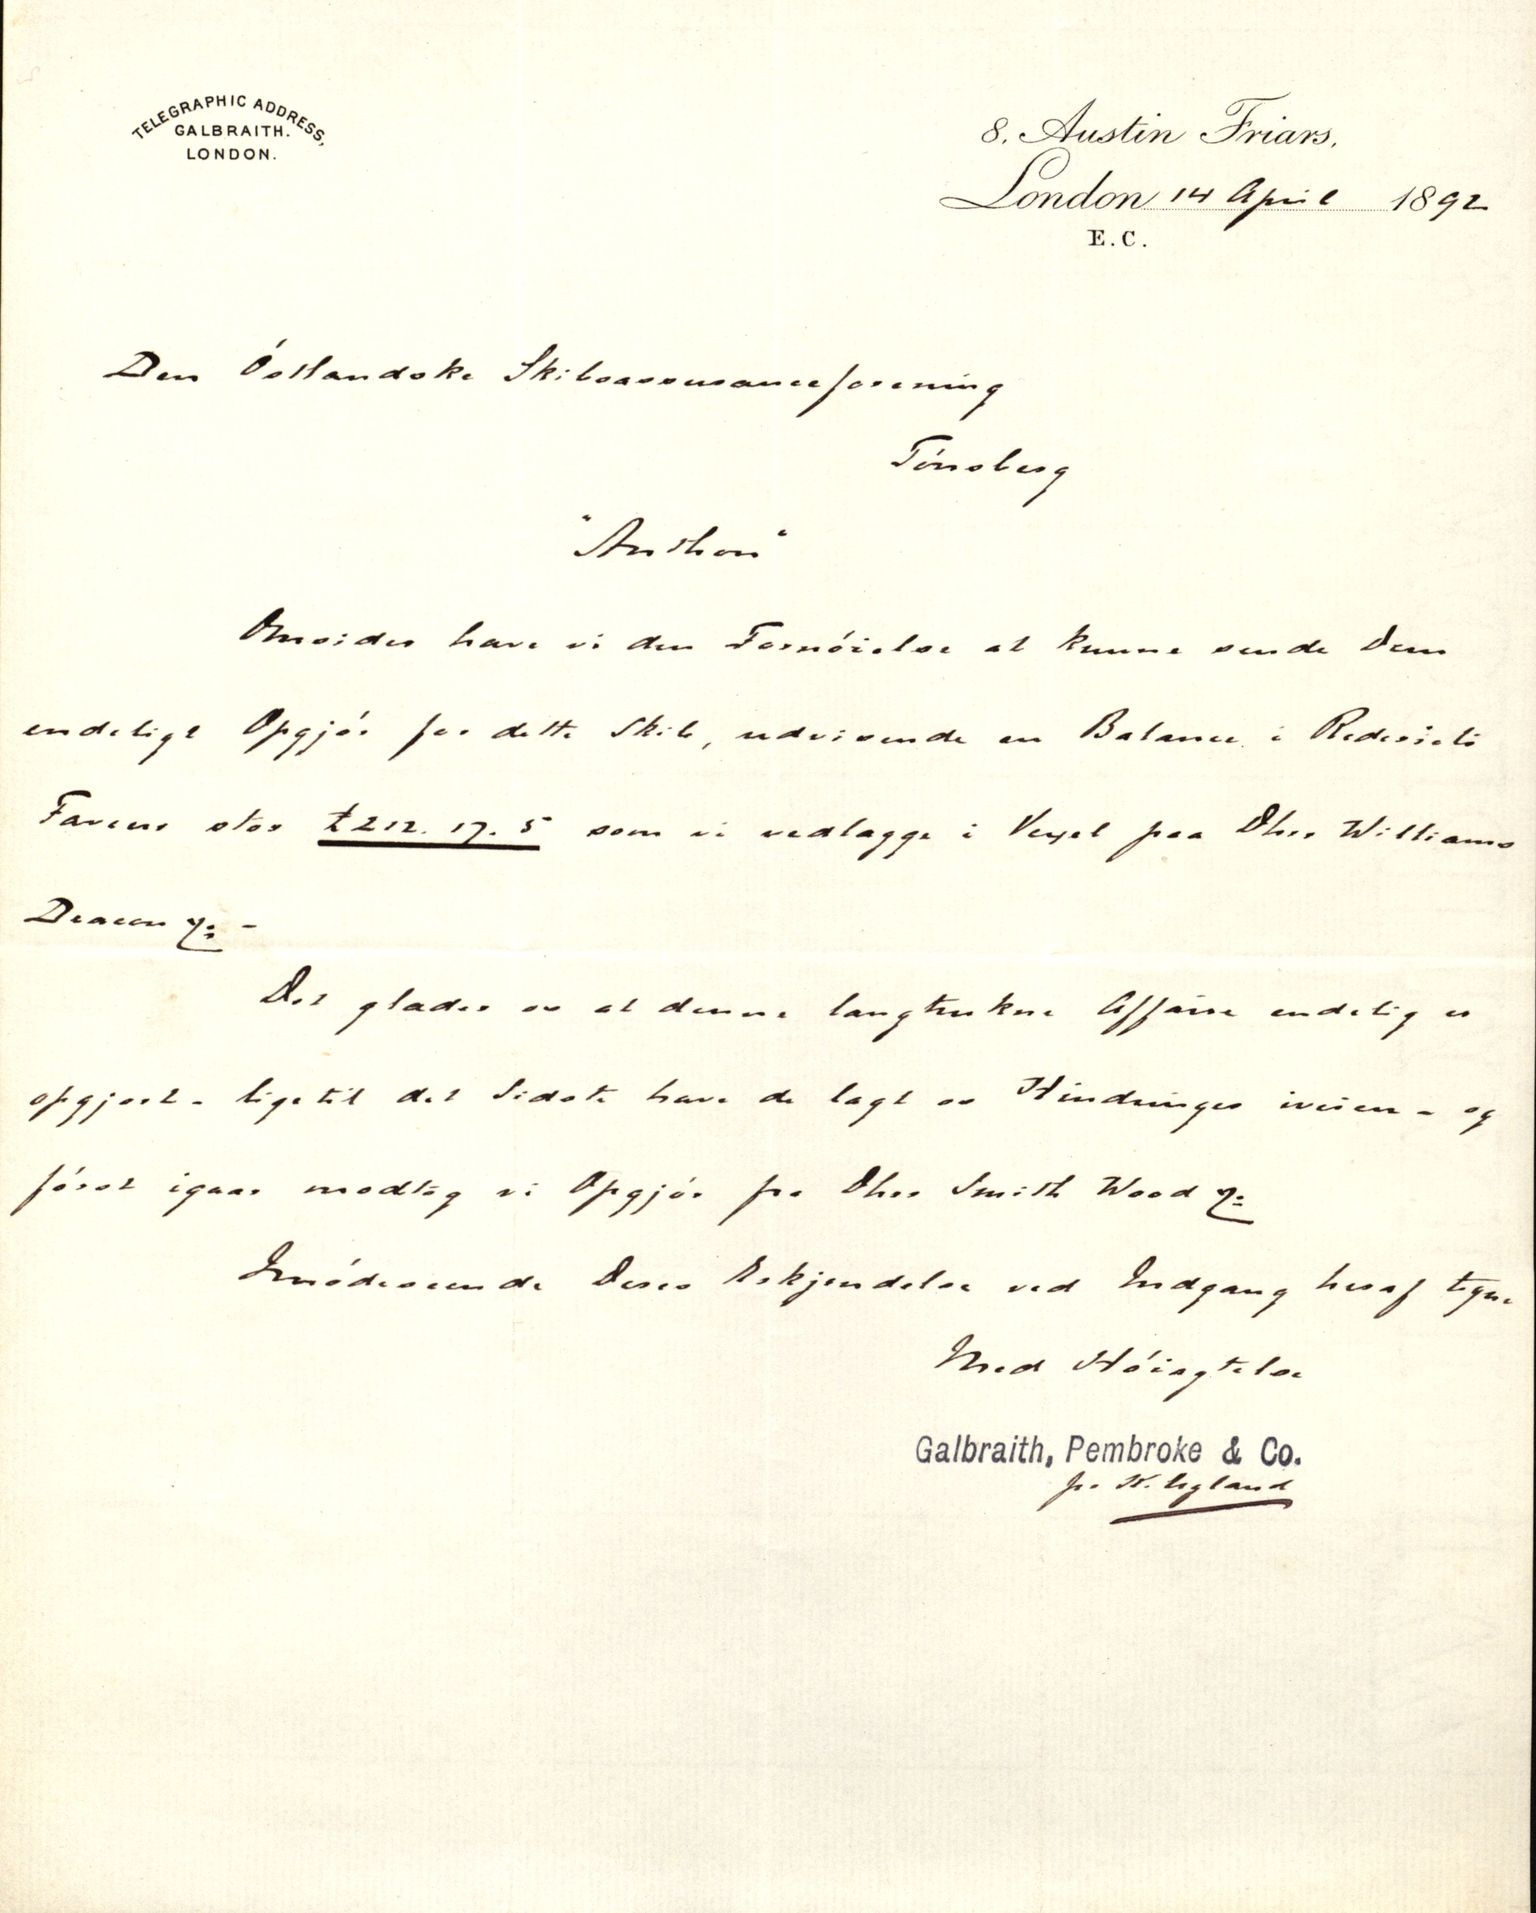 TELEGRAPHIC ADDRESS,
GALBRAITH.
LONDON.
8. Austin Friars,
London 14 April 1892
E.C.
Den Östlandske Skibsassuranceforening
Tönsberg
"Anthon"
Omsider have vi den Fornöielse at kunne sende Dem
endeligt Opgjör for dette Skib, udvisende en Balance i Rederiets
Faveur stor £212. 17. 5 som vi vedlægge i Vexel paa Dhrr Williams
Deacon
Det glæder os at denne langtrukne Affaire endelig er
opgjort - ligetil det Sidste have de lagt os Hindringer iveien - og
först igaar modtog vi Opgjör fra Dhrr Smith Wood
Imödeseende Deres Erkjendelse ved Indgang heraf tegne
Med Höiagtelse
Galbraith, Pembroke & Co.
pr H. Ugland